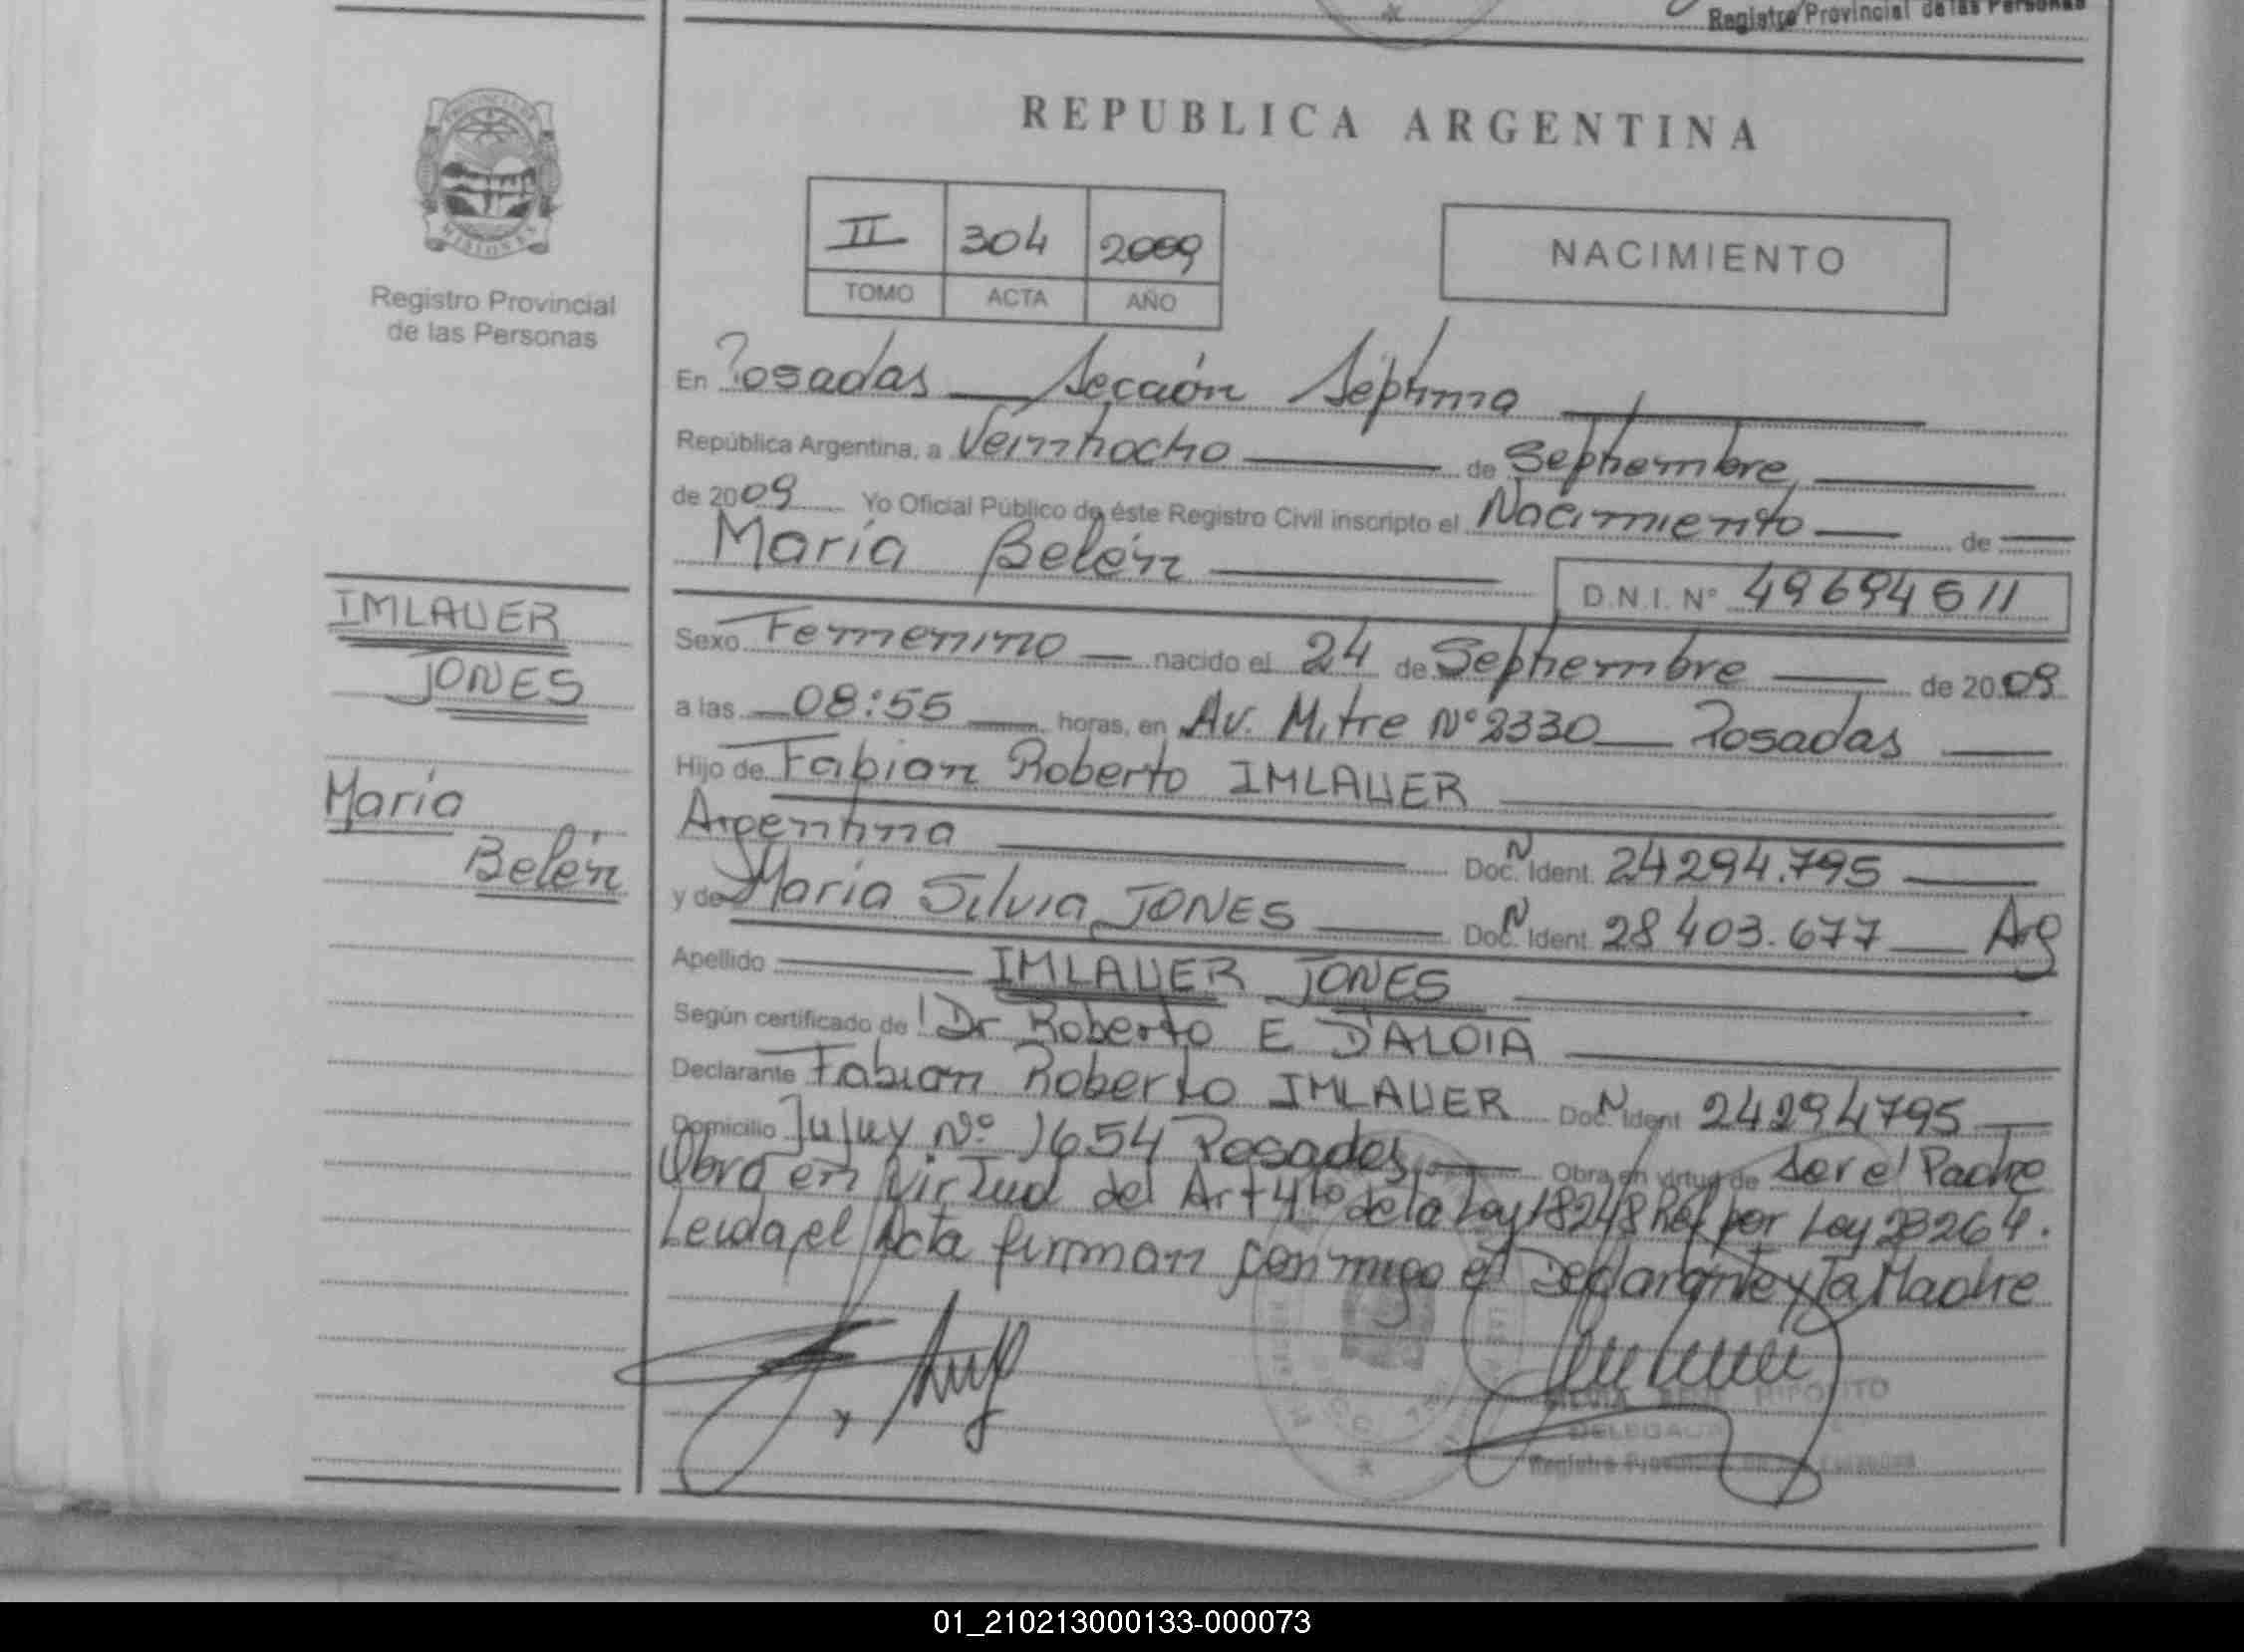 Registro Provincial de las Personas
REPUBLICA ARGENTINA
PROVINCIA DE
MISIONES
Registro Provincial
de las Personas
II 304 2009
TOMO ACTA AÑO
NACIMIENTO
En Posadas Sección Séptima
República Argentina, a Veintiocho de Septiembre
de 2009 Yo Oficial Público de éste Registro Civil inscripto el Nacimiento de
María Belén
D.N.I. Nº 49694611
IMLAUER
JONES
María
Belén
Sexo Femenino nacido el 24 de Septiembre de 2009
a las 08:55 horas, en Av. Mitre Nº 2330 Posadas
Hijo de Fabian Roberto IMLAUER
Argentina Doc. N Ident. 24294.795
y de María Silvia JONES Doc. N Ident. 28403.677 Arg
Apellido IMLAUER JONES
Según certificado de Dr Roberto E D'ALOIA
Declarante Fabian Roberto IMLAUER Doc. N Ident 24294795
Domicilio Jujuy Nº 1654 Posadas Obra en virtud de Ser el Padre
Obra en Virtud del Art 4to de la Ley 18248 Ref por Ley 23264.
Leida el Acta firman conmigo el Declarante y la Madre
DELEGADA
Registro Provincial
01_210213000133-000073